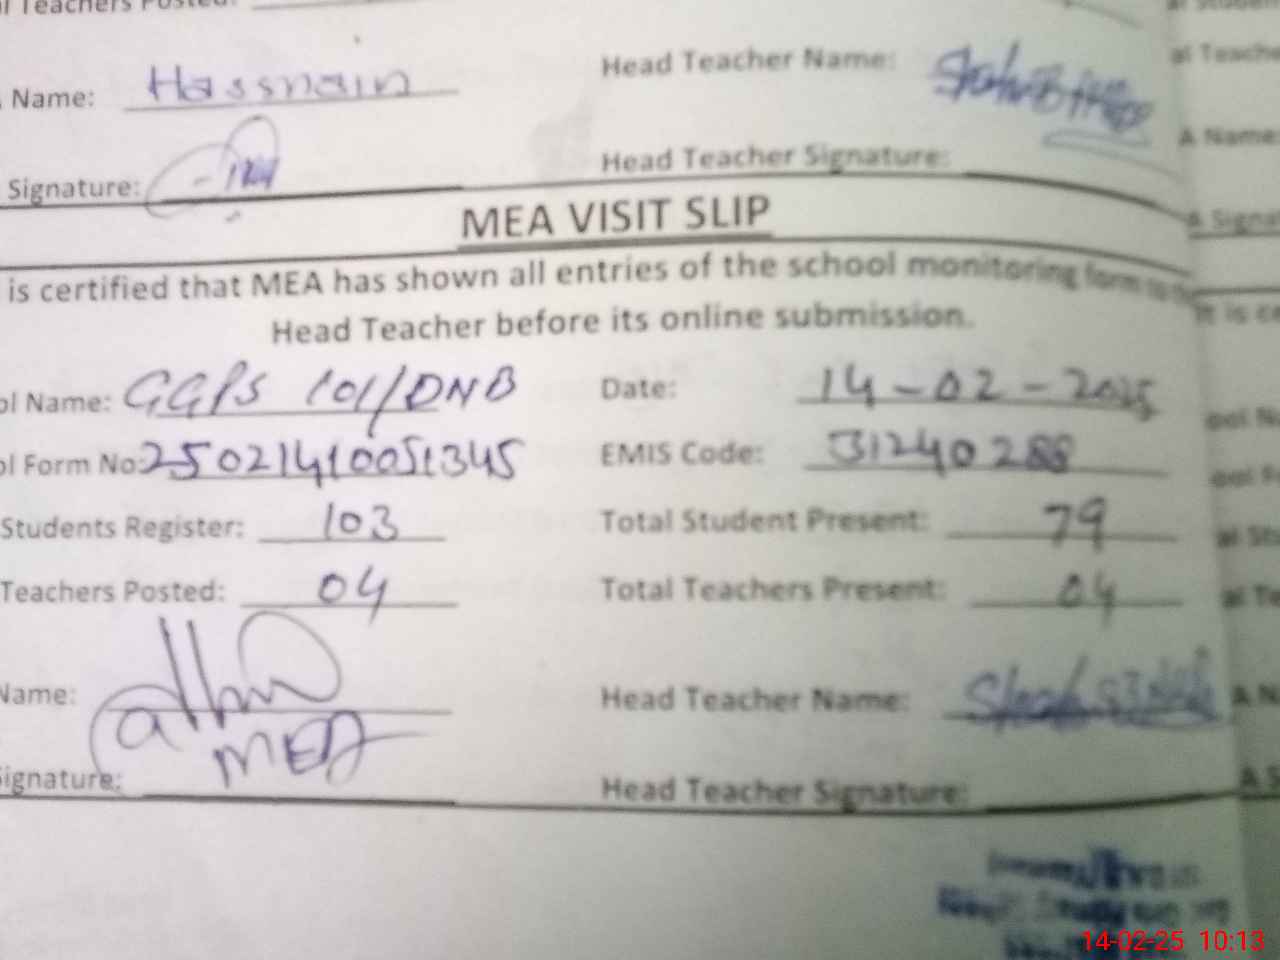 l Teachers Posted:
Name: Hassnain Head Teacher Name:
Signature: Head Teacher Signature:
MEA VISIT SLIP
is certified that MEA has shown all entries of the school monitoring form to
Head Teacher before its online submission.
ol Name: GGPS 101/DNB Date: 14-02-2025
ol Form No: 25021410051345 EMIS Code: 31240288
Students Register: 103 Total Student Present: 79
Teachers Posted: 04 Total Teachers Present: 04
Name: Head Teacher Name:
MEA
Signature: Head Teacher Signature:
al Teache
A Name:
A Signa
It is ce
ool N
ool F
al Stu
al Te
A N
A S
14-02-25 10:13